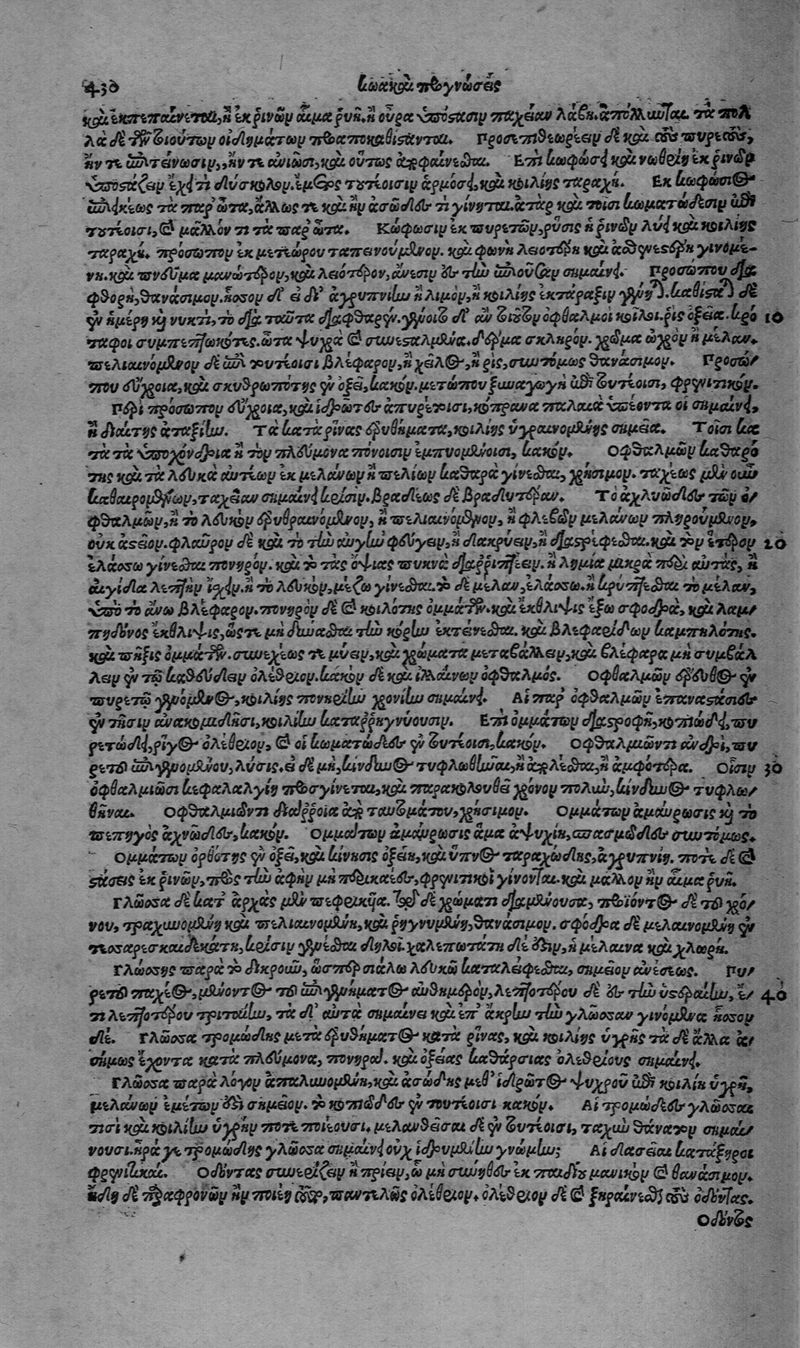 430 κωακαὶ προγνώσεις
καὶ ἐκπεπαίνεται, ἢ ἐκ ῥινῶν αἷμα ῥυῇ, ἢ οὖρα ὑπόστασιν παχεῖαν λάβῃ. ἀπόλλυνται. τὰ πολ
λὰ δὲ τῶν τοιούτων οἰδημάτων προαποκαθίστανται. Προσεπιθεωρέειν δὲ καὶ τοὺς πυρετοὺς,
ἤν τε ἐπιτείνωσιν, ἤν τε ἀνιῶσι, καὶ οὕτως ἀποφαίνεσθαι. Ἐπὶ κωφώσει καὶ νωθρείῃ ἐκ ῥινῶν
ὑποστάζειν ἔχει τὶ δύσκολον. ἔμετος τουτέοισιν ἁρμόσει, καὶ κοιλίης ταραχή. Ἐκ κωφώσιος
ἐπιεικέως τὰ παρ' ὦτα, ἄλλως τε καὶ ἢν ἀσῶδές τι γίνηται. ἀτὰρ καὶ τοῖσι κωματώδεσιν ἐπὶ
τουτέοισι, καὶ μᾶλλόν τι τὰ παρ' ὦτα. Κώφωσιν ἐκ πυρετῶν, ῥύσις ἡ ῥινῶν λύει καὶ κοιλίης
ταραχή. πρόσωπον ἐκ μετεώρου ταπεινούμενον. καὶ φωνὴ λειοτέρη καὶ ἀσθενεστέρη γινομέ-
νη. καὶ πνεῦμα μανώτερον, καὶ λειότερον, ἄνεσιν ἐς τὴν ἐπιοῦσαν σημαίνει. Προσώπου δια
φθορὴ, θανάσιμον. ἧσσον δ' εἰ δι' ἀγρυπνίην ἢ λιμὸν, ἢ κοιλίης ἐκτάραξιν γένηται. καθίσταται δὲ
ἐν ἡμέρῃ καὶ νυκτὶ, τὸ διὰ ταῦτα διαφθαρέν. γένοιτο δ' ἂν τοῦτο ὀφθαλμοὶ κοῖλοι. ῥὶς ὀξεῖα. κρό 10
ταφοι συμπεπτωκότες. ὦτα ψυχρὰ καὶ συνεσταλμένα. δέρμα σκληρόν. χρῶμα ὠχρὸν ἢ μέλαν.
πελιαινόμενον δὲ ἐπὶ τουτέοισι βλέφαρον, ἢ χεῖλος, ἢ ῥὶς, συντόμως θανάσιμον. Προσώ/
που εὔχροια, καὶ σκυθρωπότης ἐν ὀξεῖ, κακόν. μετώπου ξυναγωγὴ ἐπὶ τουτέοισι, φρενιτικόν.
Περὶ πρόσωπον εὔχροια, καὶ ἱδρῶτες ἀπυρέτοισι, κόπρανα παλαιὰ ὑπέοντα οἱ σημαίνει,
ἢ διαίτης ἀταξίην. Τὰ κατὰ ῥῖνας ἐρυθήματα, κοιλίης ὑγραινομένης σημεῖα. Τοῖσι κα
τὰ τὰ ὑποχόνδρια ἢ τὸν πλεύμονα πόνοισιν ἐμπυομένοισι, κακόν. Ὀφθαλμῶν καθαρό
της καὶ τὰ λευκὰ αὐτέων ἐκ μελάνων ἢ πελίων καθαρὰ γίνεσθαι, χρήσιμον. ταχέως μὲν οὖν
καθαιρομένων, ταχεῖαν σημαίνει κρίσιν. βραδέως δὲ βραδυτέραν. Τὸ ἀχλυῶδες τῶν ὀ/
φθαλμῶν, ἢ τὸ λευκὸν ἐρυθραινόμενον, ἢ πελιαινόμενον, ἢ φλεβῶν μελάνων πληρούμενον,
οὐκ ἀστεῖον. φλαῦρον δὲ καὶ τὸ τὴν αὐγὴν φεύγειν, ἢ δακρύειν, ἢ διαστρέφεσθαι. καὶ τὸν ἕτερον 20
ἐλάσσω γίνεσθαι πονηρόν. καὶ τὸ τὰς ὄψιας πυκνὰ διαῤῥίπτειν. ἢ λημία μικρὰ περὶ αὐτὰς, ἢ
αἰγίδα λεπτὴν ἴσχειν. ἢ τὸ λευκὸν, μέζω γίνεσθαι. τὸ δὲ μέλαν, ἐλάσσω. ἢ κρύπτεσθαι τὸ μέλαν,
ὑπὸ τὸ ἄνω βλέφαρον. πονηρὸν δὲ καὶ κοιλότης ὀμμάτων. καὶ ἔκθλιψις ἔξω σφοδρὰ, καὶ λαμ/
πηδόνος ἔκθλιψις, ὥστε μὴ δύνασθαι τὴν κόρην ἐκτείνεσθαι. καὶ βλεφαρίδων καμπυλότης.
καὶ πῆξις ὀμμάτων. συνεχέως τε μύειν, καὶ χρώματα μεταβάλλειν, καὶ βλέφαρα μὴ συμβάλ
λειν ἐν τῷ καθεύδειν ὀλέθριον. κακὸν δὲ καὶ ἰλλαίνων ὀφθαλμός. Ὀφθαλμῶν ἔρευθος ἐν
πυρετῷ γενόμενος, κοιλίης πονηρίην χρονίην σημαίνει. Αἱ παρ' ὀφθαλμὸν ἐπαναστάσιες
ἐν τῇσιν ἀνακομιδῇσι, κοιλίην καταῤῥηγνύουσιν. Ἐπὶ ὀμμάτων διαστροφῇ, κοπιώδει, πυ
ρετώδει, ῥῖγος ὀλέθριον, καὶ οἱ κωματώδεες ἐν τουτέοισι, κακόν. Ὀφθαλμιῶντι ἀνδρὶ, πυ
ρετοῦ ἐπιγενομένου, λύσις. εἰ δὲ μὴ, κίνδυνος τυφλωθῆναι, ἢ ἀπολέσθαι, ἢ ἀμφότερα. Οἷσιν 30
ὀφθαλμιῶσι κεφαλαλγίη προσγίνεται, καὶ παρακολουθεῖ χρόνον πολὺν, κίνδυνος τυφλω/
θῆναι. Ὀφθαλμιῶντι διάῤῥοια ἀπὸ ταυτομάτου, χρήσιμον. Ὀμμάτων ἀμαύρωσις καὶ τὸ
πεπηγὸς ἀχνῶδες, κακόν. Ὀμμάτων ἀμαύρωσις ἅμα ἀψυχίῃ, σπασμῶδες συντόμως.
Ὀμμάτων ὀρθότης ἐν ὀξεῖ, καὶ κίνησις ὀξείη, καὶ ὕπνος ταραχώδης, ἀγρυπνίη. ποτὲ δὲ καὶ
στάξιες ἐκ ῥινῶν, πρὸς τὴν ἁφὴν μὴ περικαέες, φρενιτικοὶ γίνονται. καὶ μᾶλλον ἢν αἷμα ῥυῇ.
Γλῶσσα δὲ κατ' ἀρχὰς μὲν πεφρικυῖα. τῷ δὲ χρώματι διαμένουσα, προϊόντος δὲ τοῦ χρό/
νου, τραχυνομένη καὶ πελιαινομένη, καὶ ῥηγνυμένη, θανάσιμον. σφόδρα δὲ μελαινομένη ἐν
τεσσαρεσκαιδεκάτῃ, κρίσιν γενέσθαι δηλοῖ. χαλεπωτάτη δέ ἐστιν, ἡ μέλαινα καὶ χλωρή.
Γλώσσης παρὰ τὸ δίκρουν, ὥσπερ σιάλῳ λευκῷ καταλείφεσθαι, σημεῖον ἀνέσεως. Πυ/
ρετοῦ παχέος, μένοντος τοῦ ἐπιγενήματος αὐθημερὸν, λεπτοτέρου δὲ ἐς τὴν ὑστεραίην, ἔ/ 40
τι λεπτοτέρου τριταίην, τὰ δ' αὐτὰ σημαίνει καὶ ἐπ' ἄκρην τὴν γλῶσσαν γινόμενα ἧσσον
δέ. Γλῶσσα τρομώδης μετὰ ἐρυθήματος κατὰ ῥῖνας, καὶ κοιλίης ὑγρῆς τὰ δὲ ἄλλα ἀ/
σήμως ἔχοντα κατὰ πλεύμονα, πονηρά. καὶ ὀξείας καθάρσιας ὀλεθρίους σημαίνει.
Γλῶσσα παρὰ λόγον ἁπαλυνομένη, καὶ ἀσώδης μεθ' ἱδρῶτος ψυχροῦ ἐπὶ κοιλίῃ ὑγρῇ,
μελάνων ἐμέτων ἐστὶ σημεῖον. τὸ κοπιῶδες ἐν τουτέοισι κακόν. Αἱ τρομώδεες γλῶσσαι
τισὶ καὶ κοιλίην ὑγρήν ποτε ποιέουσι. μελανθεῖσαι δὲ ἐν τουτέοισι, ταχὺν θάνατον σημαί/
νουσι. ἦρά γε τρομώδης γλῶσσα σημαίνει οὐχ ἱδρυμένην γνώμην; Αἱ δασεῖαι κατάξηροι
φρενιτικαί. Ὀδόντας συνερίζειν ἢ πρίειν, ᾧ μὴ σύνηθες ἐκ παιδίου μανικὸν καὶ θανάσιμον.
ἤδη δὲ παραφρονῶν ἢν ποιέῃ τοῦτο, παντελῶς ὀλέθριον. ὀλέθριον δὲ καὶ ξηραίνεσθαι τοὺς ὀδόντας.
Ὀδόντος